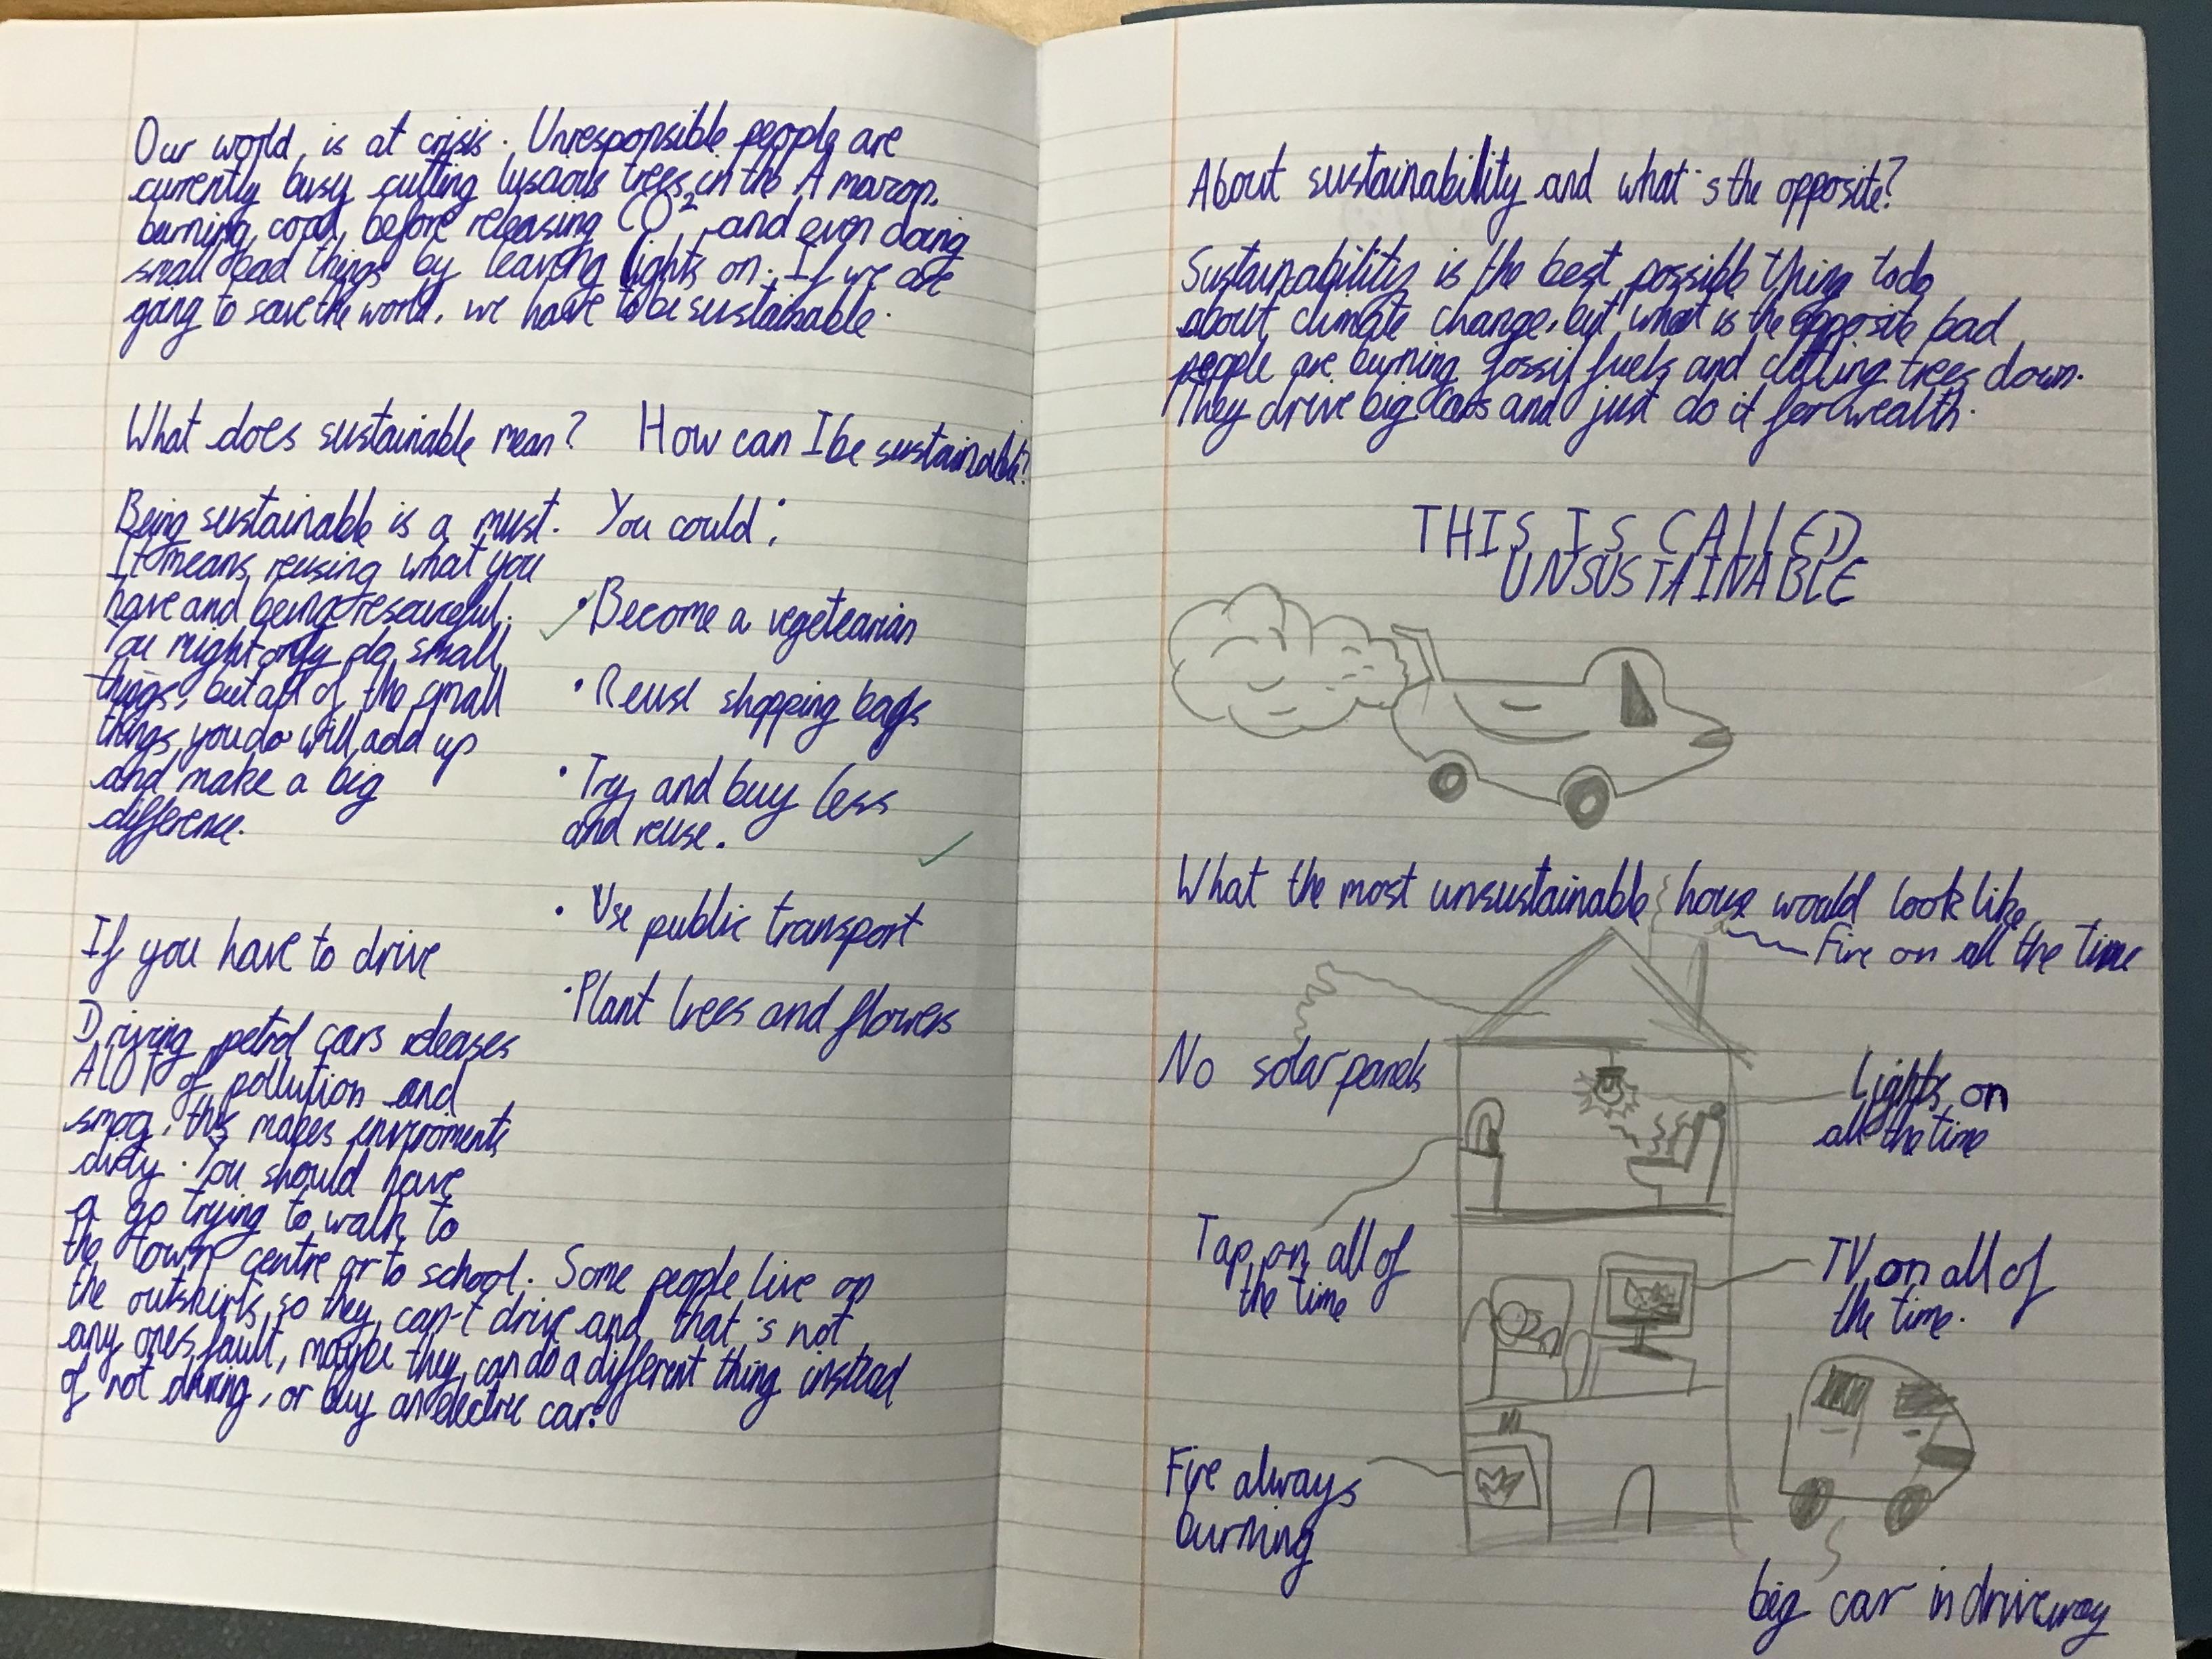 Our world, is at crisis. Unresponsible people are
currently busy cutting luscious trees in the Amazon,
burning coal, before releasing CO², and even doing
small bad things by leaving lights on. If we are
going to save the world, we have to be sustainable.
What does sustainable mean?
Being sustainable is a must.
It means reusing what you
have and being resourceful.
You might only do small
things, but all of the small
things you do will add up
and make a big
difference.
How can I be sustainable?
You could:
• Become a vegetearian
• Reuse shopping bags
• Try and buy less
and reuse.
• Use public transport
• Plant trees and flowers
If you have to drive
Driving petrol cars releases
ALOT of pollution and
smog, this makes enviroments
dirty. You should have
a go trying to walk to
the town centre or to school. Some people live on
the outskirts, so they can't drive and that's not
any ones fault, maybe they can do a different thing instead
of not driving, or buy an electric car.
About sustainability and what's the opposite?
Sustainability is the best possible thing to do
about climate change, but what is the opposite bad
people are burning fossil fuels and cutting trees down.
They drive big cars and just do it for wealth.
THIS IS CALLED
UNSUSTAINABLE
What the most unsustainable house would look like
Fire on all the time
No solar panels
Lights on
all the time
Tap on all of
the time
TV on all of
the time.
Fire always
burning
big car in driveway